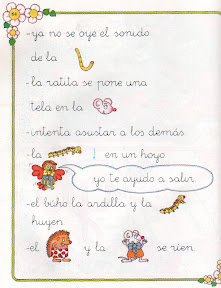 -ya no se oye el sonido
de la
-la ratita se pone una
tela en la
-intenta asustar a los demás
-la en un hoyo
yo te ayudo a salir
-el búho la ardilla y la
huyen
-el y la se ríen